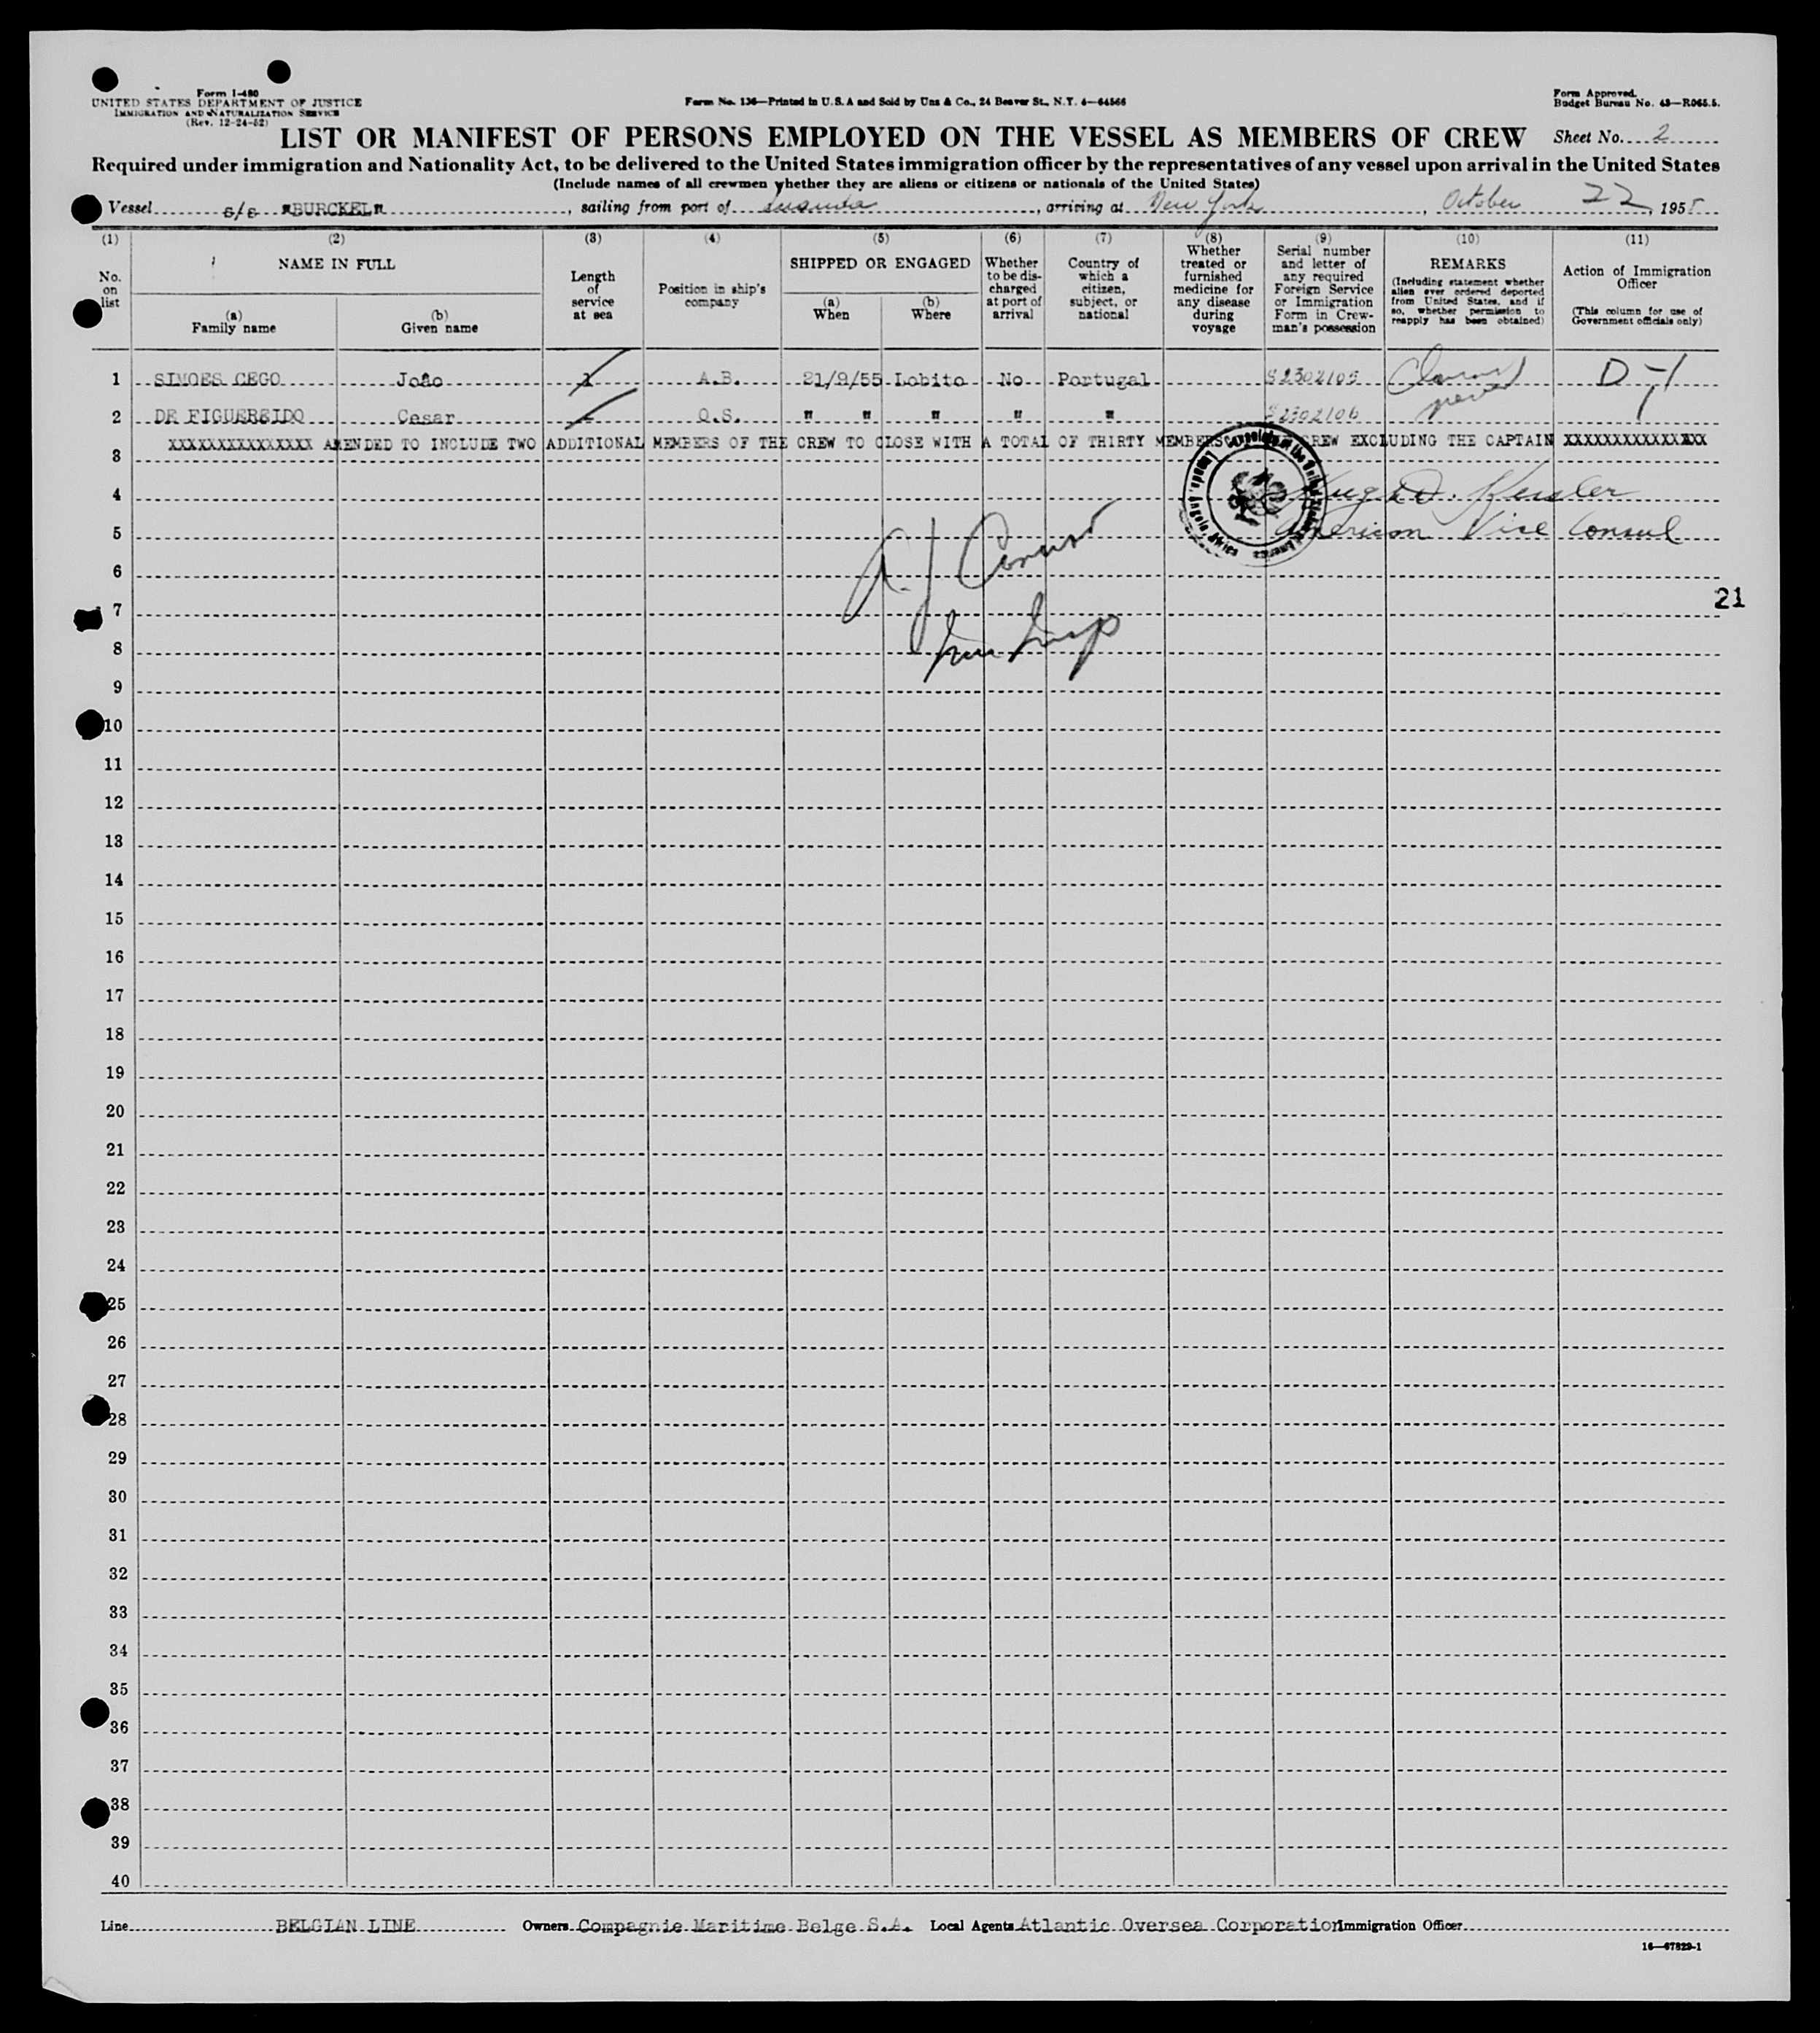 Form I-480
UNITED STATES DEPARTMENT OF JUSTICE
IMMIGRATION AND NATURALIZATION SERVICE
(Rev. 12-24-52)
Form No. 136—Printed in U.S.A and Sold by Unz & Co., 24 Beaver St., N.Y. 4—64566
Form Approved.
Budget Bureau No. 43—R065.5.
LIST OR MANIFEST OF PERSONS EMPLOYED ON THE VESSEL AS MEMBERS OF CREW
Sheet No. 2
Required under immigration and Nationality Act, to be delivered to the United States immigration officer by the representatives of any vessel upon arrival in the United States
(Include names of all crewmen whether they are aliens or citizens or nationals of the United States)
Vessel s/s "BURCKEL", sailing from port of Luanda, arriving at New York, October 22, 1955
(1) No. on list
(2) NAME IN FULL
(a) Family name
(b) Given name
(3) Length of service at sea
(4) Position in ship's company
(5) SHIPPED OR ENGAGED
(a) When
(b) Where
(6) Whether to be discharged at port of arrival
(7) Country of which a citizen, subject, or national
(8) Whether treated or furnished medicine for any disease during voyage
(9) Serial number and letter of any required Foreign Service or Immigration Form in Crewman's possession
(10) REMARKS (Including statement whether alien ever ordered deported from United States, and if so, whether permission to reapply has been obtained)
(11) Action of Immigration Officer (This column for use of Government officials only)
1 SIMOES CEGO João 1 A.B. 21/9/55 Lobito No Portugal S2302105 D-1
2 DE FIGUEREIDO Cesar O.S. " " " " " S2302106
XXXXXXXXXXXXXXX AMENDED TO INCLUDE TWO ADDITIONAL MEMBERS OF THE CREW TO CLOSE WITH A TOTAL OF THIRTY MEMBERS CREW EXCLUDING THE CAPTAIN XXXXXXXXXXXXXXX
3
4 Kessler
5 American Vice Consul
6
7
21
8
9
10
11
12
13
14
15
16
17
18
19
20
21
22
23
24
25
26
27
28
29
30
31
32
33
34
35
36
37
38
39
40
Line BELGIAN LINE Owners Compagnie Maritime Belge S.A. Local Agents Atlantic Oversea Corporation Immigration Officer
16—67829-1